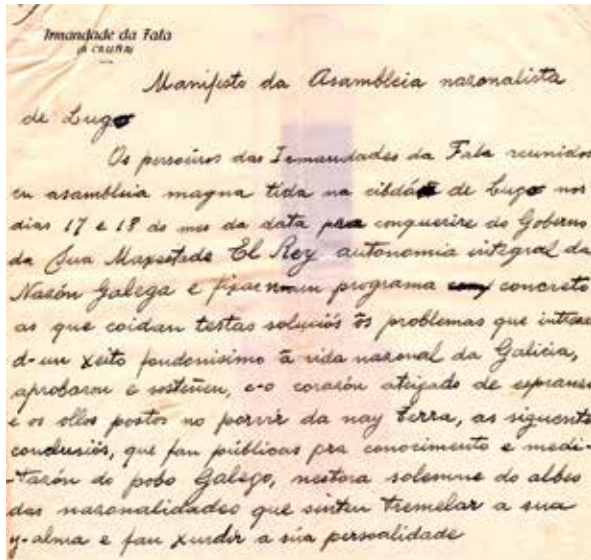 Irmandade da Fala
(A CRUÑA)
Manifesto da Asambleia nazonalista
de Lugo
Os persoeiros das Irmandades da Fala reunidos
en asambleia magna tida na cibdá de Lugo nos
dias 17 e 18 do mes da data pra conquerire do Goberno
da Sua Maxestade El Rey autonomia integral da
Nazón Galega e fixar un programa concreto
as que coidan testas soluciós ós problemas que intere
d-un xeito fondenisimo â vida nazonal da Galicia,
aprobaron e sosteñen, c-o corazón ateigado de espranza
e os ollos postos no porvir da nay terra, as siguente
conclusiós, que fan públicas pra conocimento e medi-
-tazón do pobo Galego, nestora solemne do albor
das nazonalidades que sinten tremelar a sua
y-alma e fan xurdir a súa persoalidade